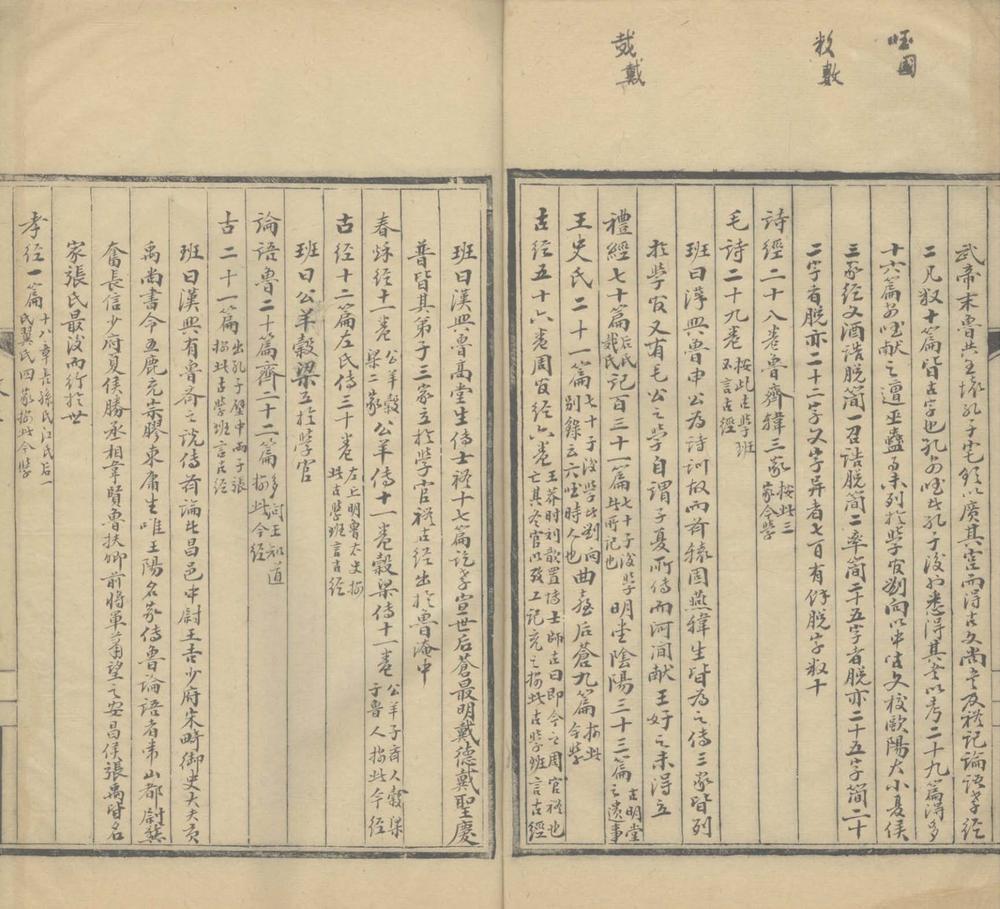 㘳國
敉數
㦲戴
武帝末魯共王壞孔子宅欲以廣其宮而得古文尚書及禮記論語孝經
二凡敉十篇皆古字也孔安㘳者孔子後也悉得其書以考二十九篇得多
十六篇安㘳献之遭巫蠱未列於學官劉向以中古文校歐陽大小夏侯
三家經文酒誥脫簡一召誥脫簡二率簡二十五字者脫亦二十五字簡二十
二字者脫亦二十二字文字异者七百有餘脫字敉十
詩經二十八卷魯齊韓三家按此三家今學
毛詩二十九卷按此古學班不言古經
班曰漢興魯申公為詩訓故而齊轅固燕韓生皆為之傳三家皆列
於學官又有毛公之學自謂子夏所傳而河间献王好之未得立
禮經七十篇后氏㦲氏記百三十一篇七十子後學此所記也明堂陰陽三十三篇古明堂之遺事
王史氏二十一篇七十子後學此劉向別錄云六㘳時人也曲臺后蒼九篇按此今學
古经五十六卷周官经六卷王莽时刘歆置博士師古曰即今之周官禮也亡其冬官以考工記充之按此古學班言古經
班曰漢興魯高堂生傳士禮十七篇訖孝宣世后蒼最明戴德戴聖慶
普皆其弟子三家立於學官禮古经出於魯淹中
春秋经十一卷公羊穀梁二家公羊傳十一卷穀梁傳十一卷公羊子齊人穀梁子魯人按此今经
古经十二篇左氏傳三十卷左丘明魯太史按此古學班言古经
班曰公羊穀梁立於學官
論語魯二十篇齊二十二篇多问王知道按此今經
古二十一篇出孔子壁中两子張按此古學班言古经
班曰漢興有魯齊之說傳齊論者昌邑中尉王吉少府宋畸御史大夫貢
禹尚書令五鹿充宗膠東庸生唯王陽名家傳魯論語者常山都尉龔
奮長信少府夏侯勝丞相韋賢魯扶卿前將軍萧望之安昌侯張禹皆名
家張氏最後而行於世
孝经一篇十八章長孫氏江氏后氏翼氏四家按此今學